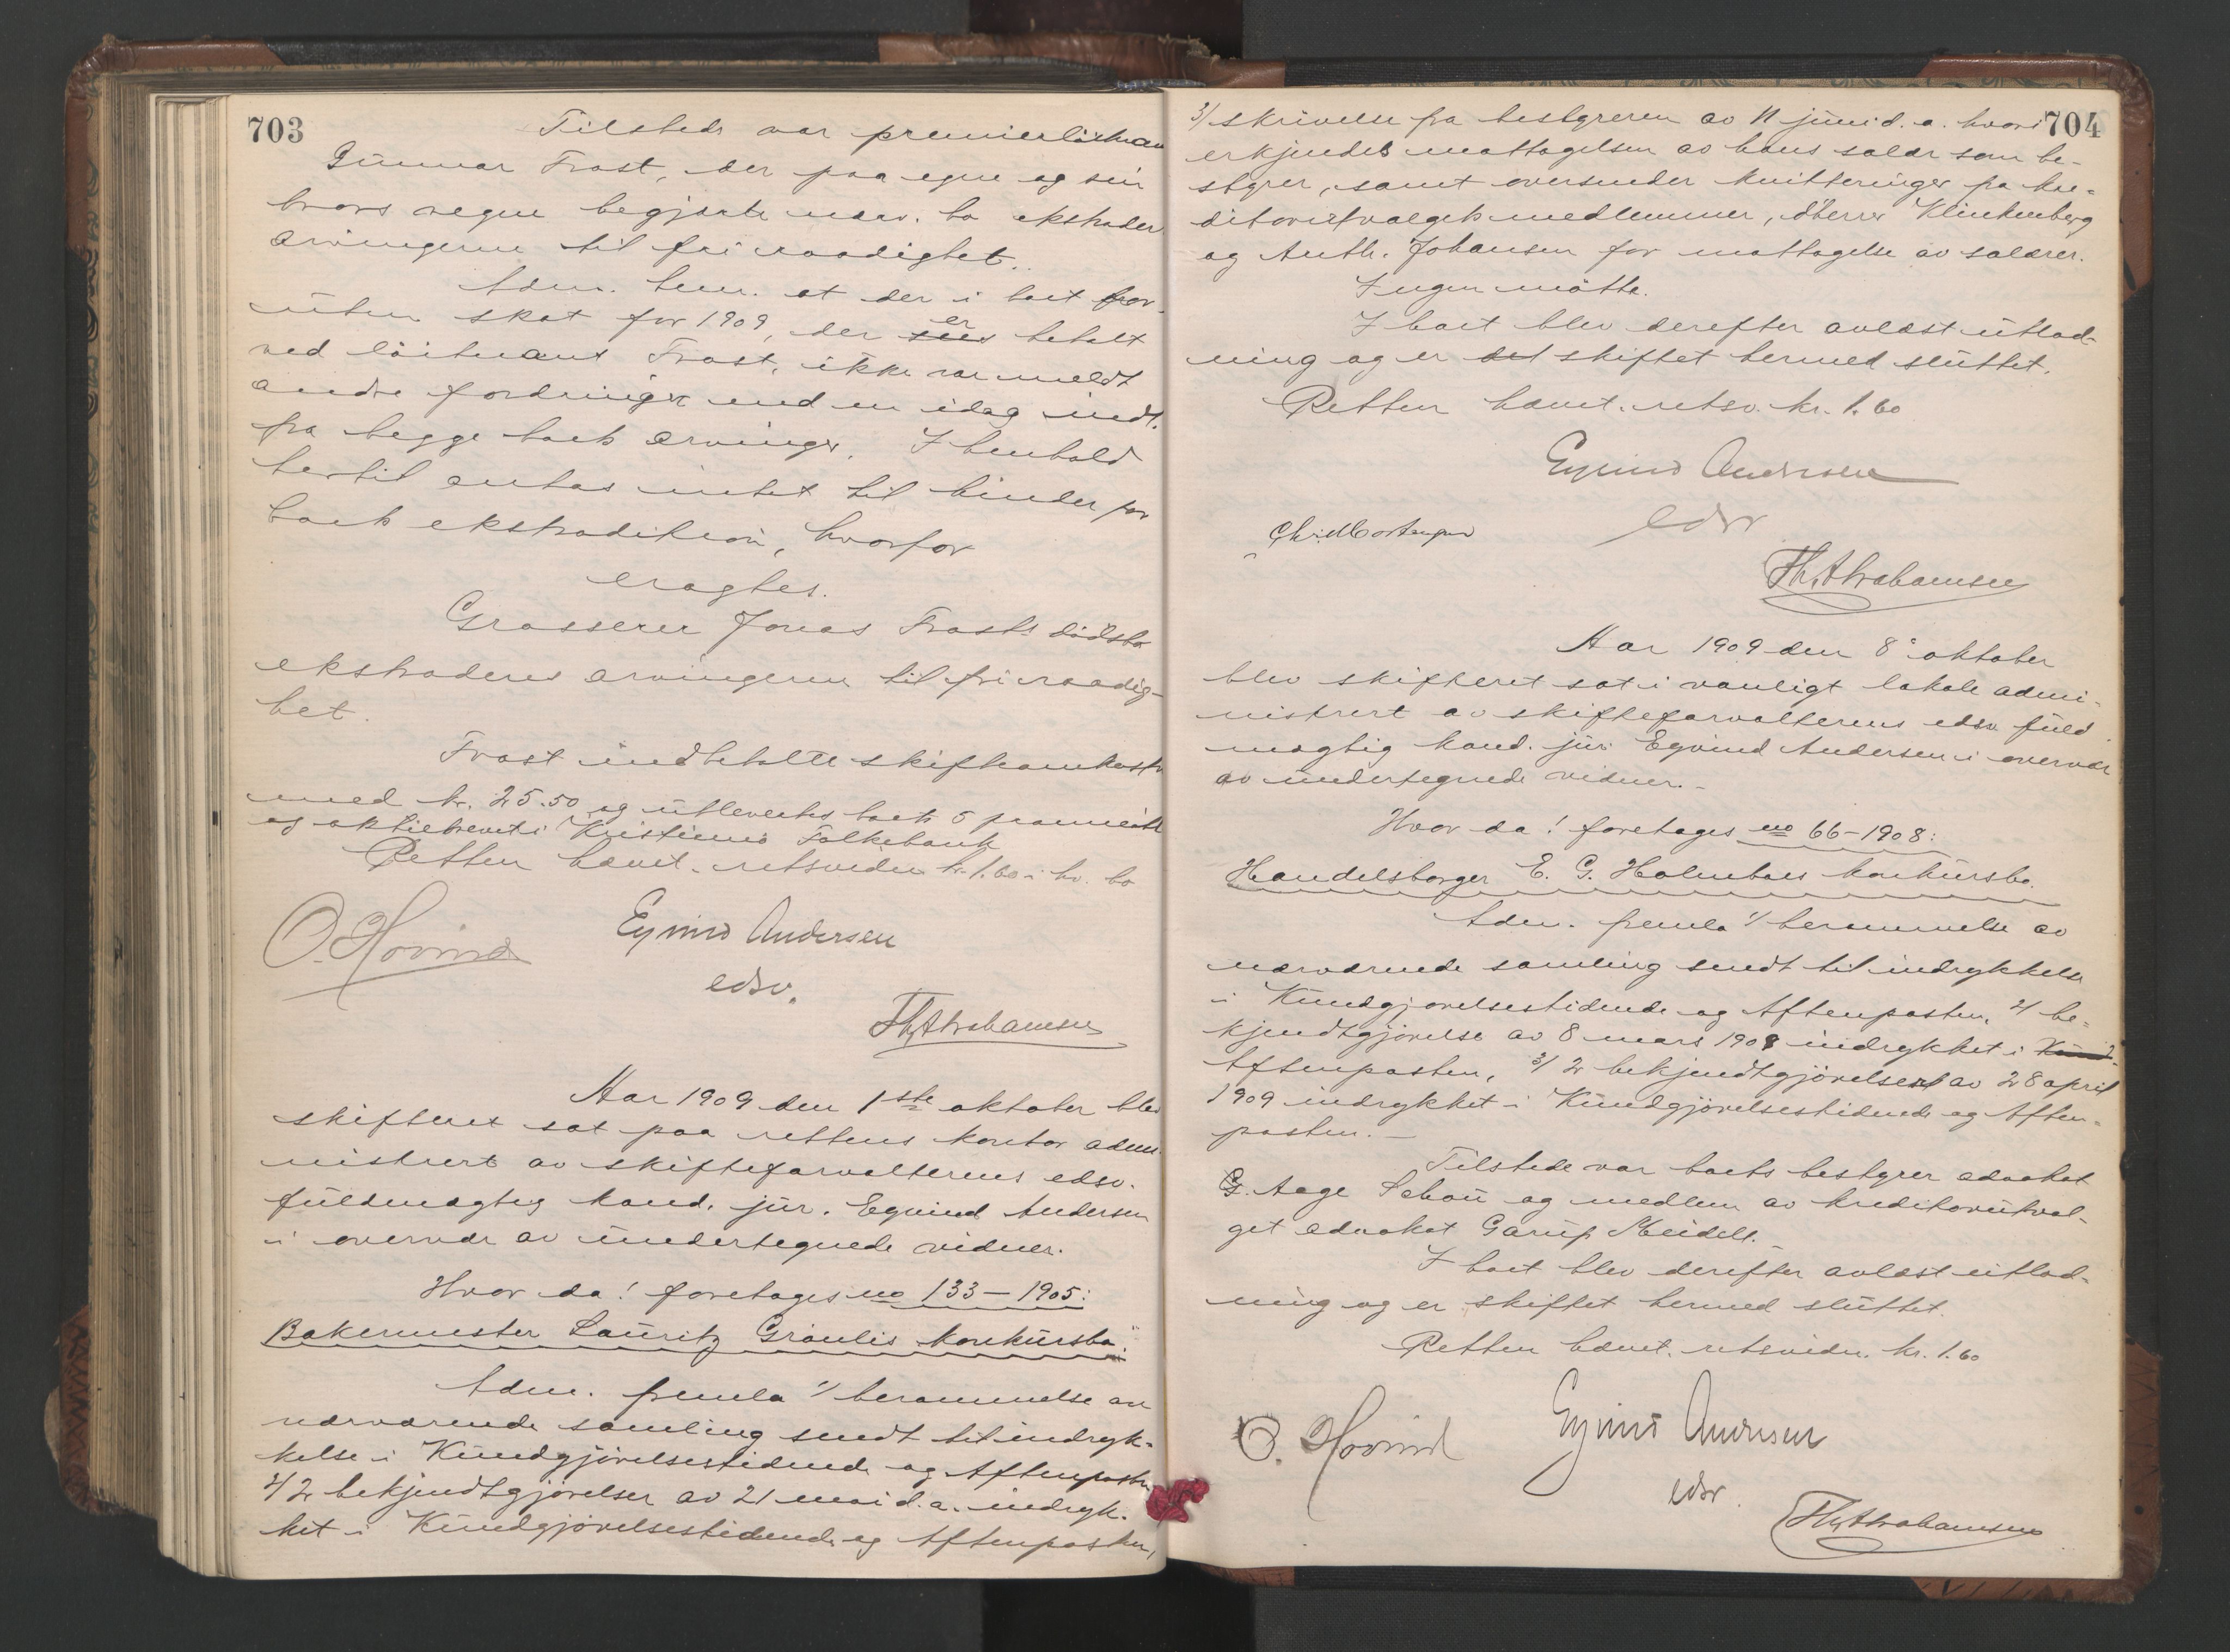 703
Tilstede var premierløitnan
Gunnar Frost, der paa egne og sin
brors vegne begjærte nærv. bo ekstradert
arvingerne til fri raadighet.
Adm. bem. at der i boet for-
uten skat for 1909, der er betalt
ved løitnant Frost, ikke var meldt
andre fordringer end en idag indt.
fra begge boets arvinger. I henhold
hertil antas intet til hinder for
boets ekstradition, hvorfor
eragtes.
Grosserer Jonas Frosts dødsbo
ekstraderes arvingerne til fri raadig-
het.
Frost indbetalte skifteomkostn
med kr. 25.50 og utleveredes boets 5
og aktiebrevet i Kristiania Folkebank
Retten hævet. retsvidn kr. 1.60 i hv. bo
O. Hovind
Eyvind Andersen
edsv.
Th. Abrahamsen
Aar 1909 den 1ste oktober blev
skifteret sat paa rettens kontor admi
nistrert av skifteforvalterens edsv.
fuldmægtig kand. jur. Eyvind Andersen
i overvær av undertegnede vidner.
Hvor da! foretages no 133 – 1905:
Bakermester Lauritz Grønlis konkursbo.
Adm. fremla 1/ berammelse av
nærværende samling sendt til indryk-
kelse i Kundgjørelsestidende og Aftenposten
2/ 2 bekjendtgjørelser av 21 mai d.a. indryk-
ket i Kundgjørelsestidende og Aftenposten,
704
3/ skrivelse fra bestyreren av 11 juni d.a. hvori
erkjendes mottagelsen av hans salær som be-
styrer, samt oversender kvitteringer fra kre-
ditorutvalgets medlemmer, d'herrer Klinkenberg
og Anth. Johansen for mottagelse av salærer.
Ingen møtte.
I boet blev derefter avlæst utlod-
ning og er det skiftet hermed sluttet.
Retten hævet. retsv. kr. 1.60
Eyvind Andersen
edsv
Th. Abrahamsen
Aar 1909 den 8de oktober
blev skifteret sat i vanligt lokale admi-
nistrert av skifteforvalterens edsv. fuld
mægtig kand. jur. Eyvind Andersen i overvær
av undertegnede vidner.-
Hvor da! foretages no 66 – 1908:
Handelsborger E. G. Holmboes konkursbo.
Adm. fremla 1/ berammelse av
nærværende samling sendt til indrykkelse
i Kundgjørelsestidende og Aftenposten, 2/ be-
kjendtgjørelse av 8 mars 1909 indrykket i Kund-
Aftenposten, 3/ 2 bekjendtgjørelser av 28 april
1909 indrykket i Kundgjørelsestidende og Aften-
posten.-
Tilstede var boets bestyrer advokat
G. Aage Schou og medlem av kreditorutval-
get advokat Garup Meidell.
I boet blev derefter avlæst utlod-
ning og er skiftet hermed sluttet.
Retten hævet. retsvidn. kr. 1.60
O. Hovind
Eyvind Andersen
edsv.
Th. Abrahamsen